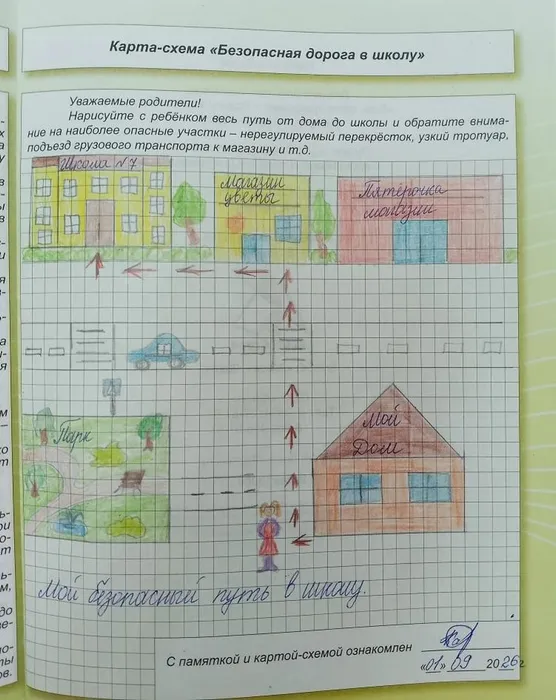 Карта-схема «Безопасная дорога в школу»
Уважаемые родители!
Нарисуйте с ребёнком весь путь от дома до школы и обратите внима-
ние на наиболее опасные участки – нерегулируемый перекрёсток, узкий тротуар,
подъезд грузового транспорта к магазину и т.д.
Школа №7
Магазин
цветы
Пятёрочка
магазин
Парк
Мой
Дом
Мой безопасный путь в школу.
С памяткой и картой-схемой ознакомлен
«01» 09 2026г